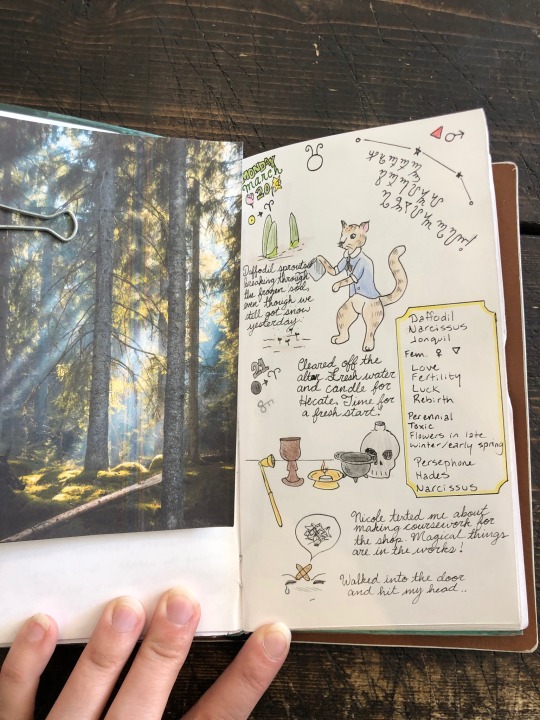 Monday
March
20
Daffodil sprouts
breaking through
the frozen soil,
even though we
still got snow
yesterday.
21
Cleared off the
altar. Fresh water
and candle for
Hecate. Time for
a fresh start!
Daffodil
Narcissus
Jonquil
Fem. ♀ ▽
Love
Fertility
Luck
Rebirth
Perennial
Toxic
Flowers in late
winter/early spring
Persephone
Hades
Narcissus
Nicole texted me about
making coursework for
the shop. Magical things
are in the works!
Walked into the door
and hit my head..